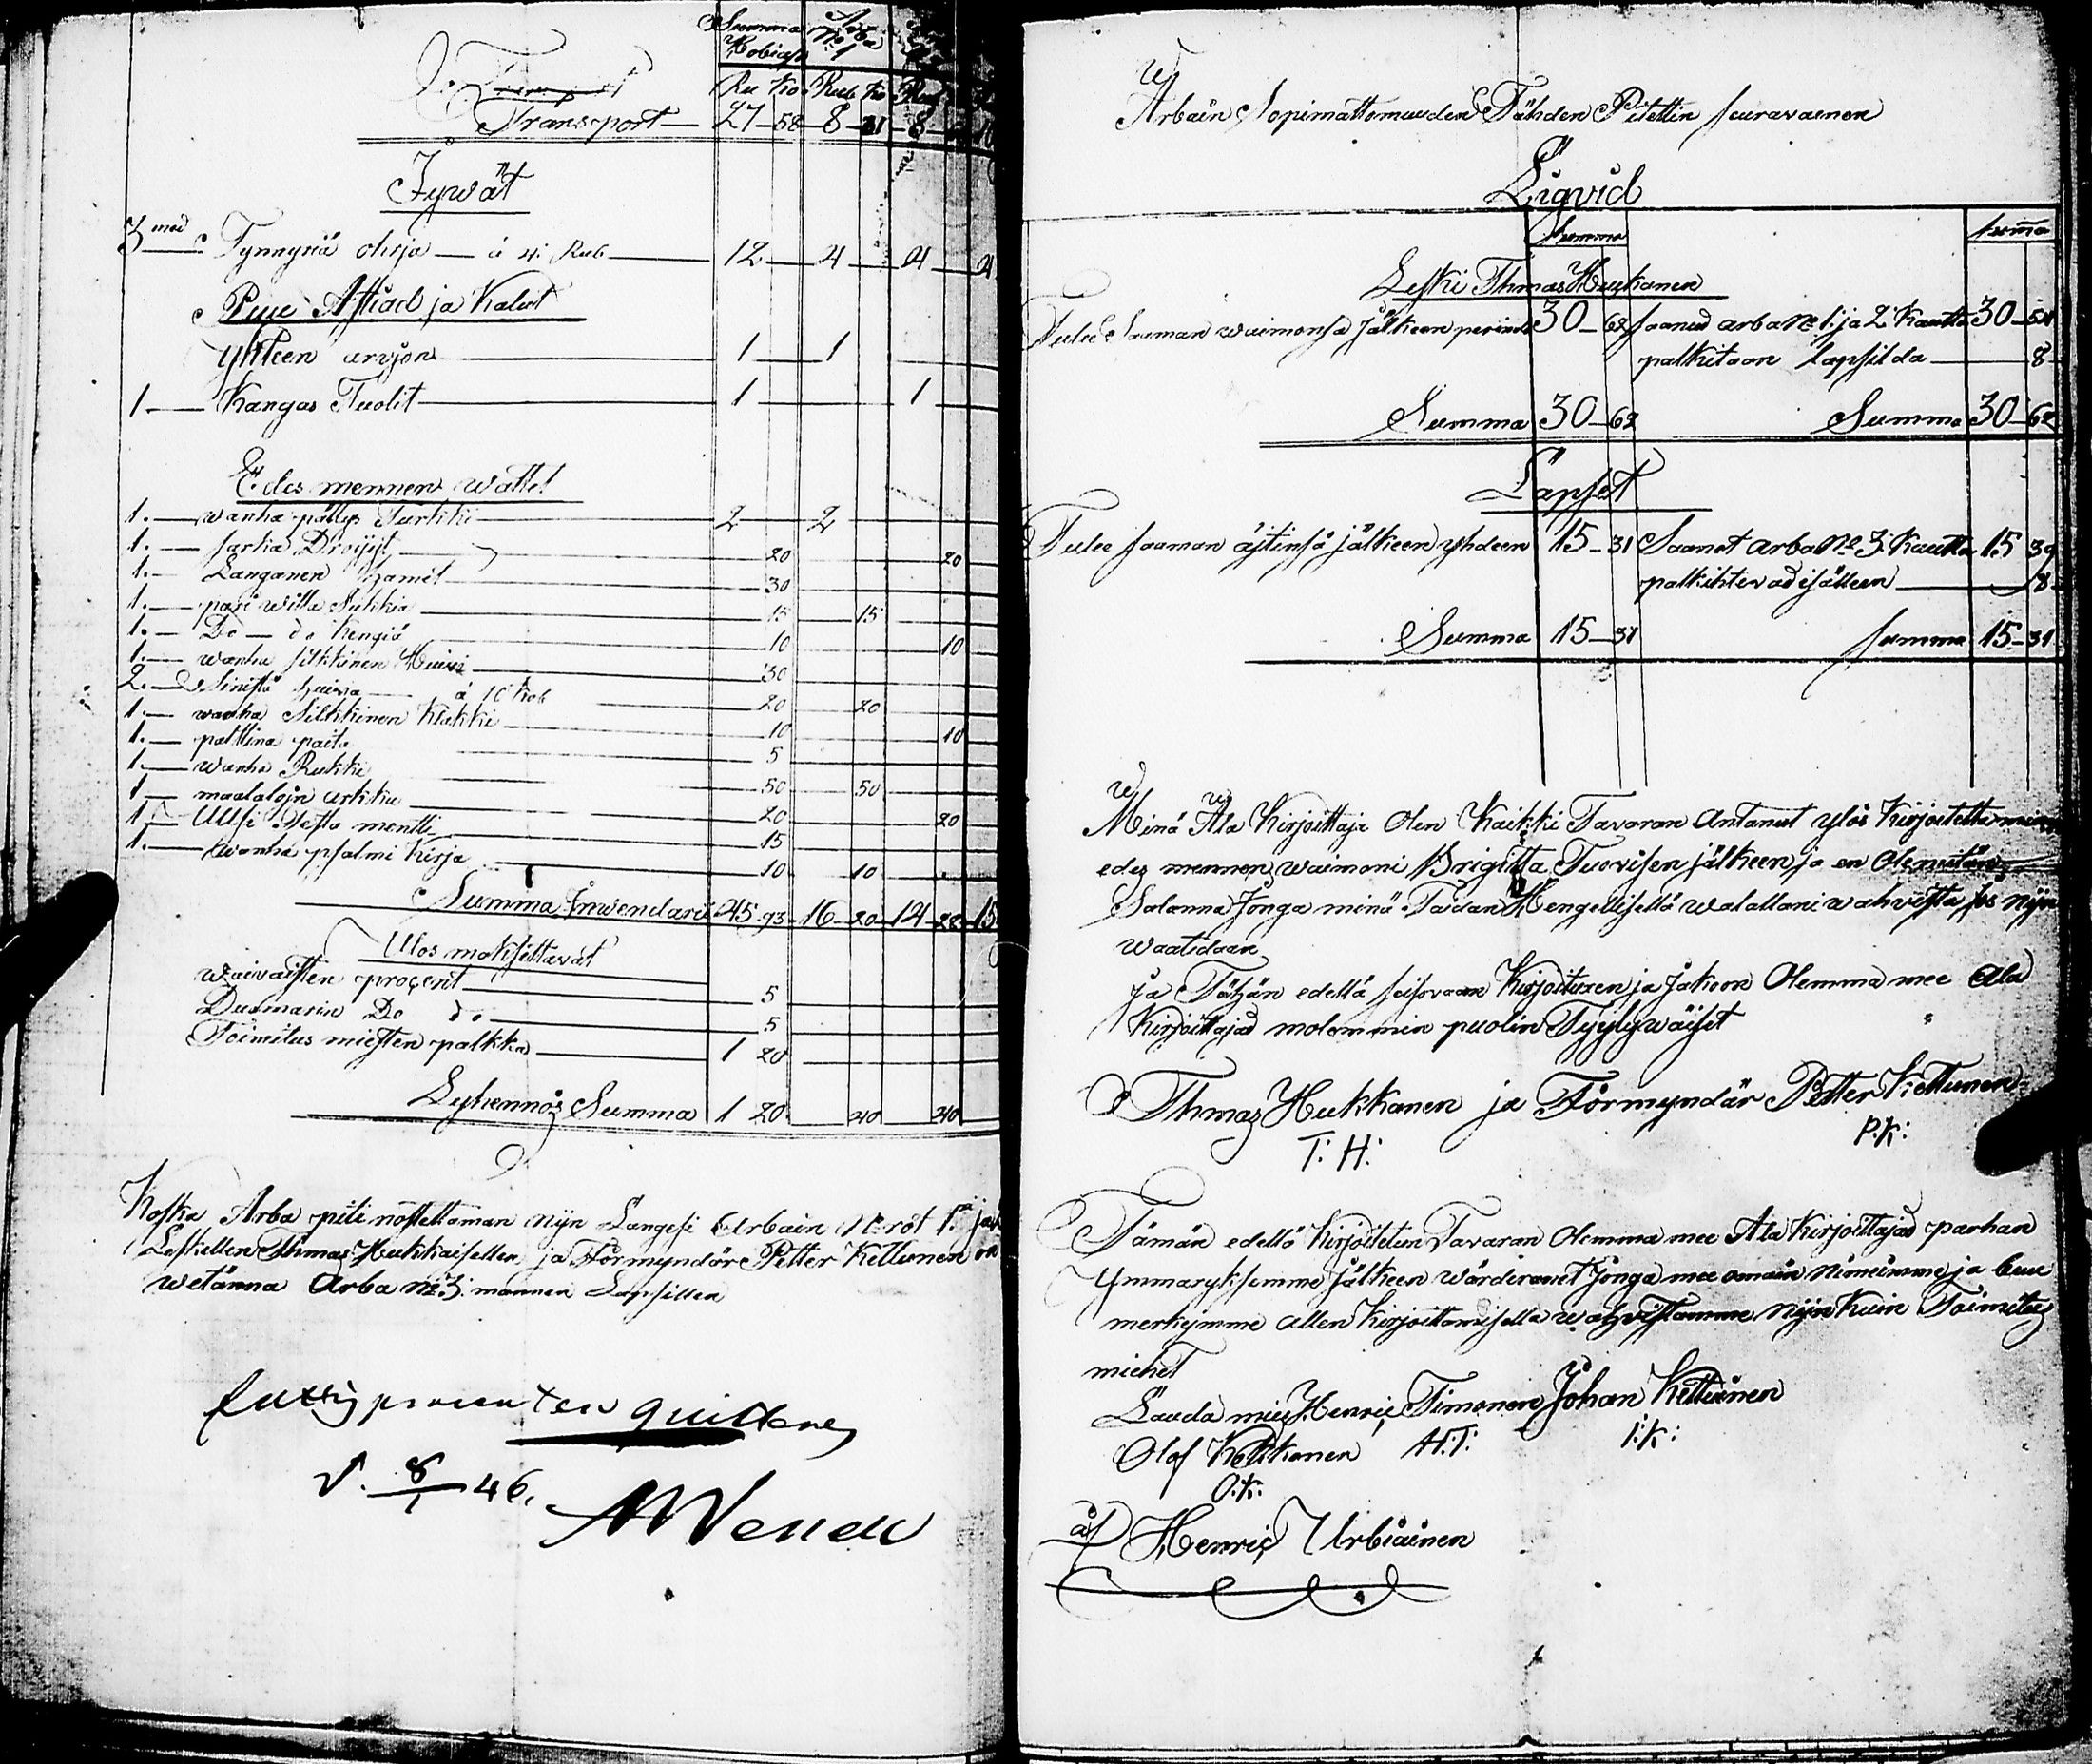 Summa Arba
No 1
Ru Ko Rub Ko Rub
Transport 27 58 8 31 8
Jywät
3 med Tynnyriä ohria à 4: Rub 12 4 4 4
Puu Astiad ja Kalut
yhteen arvjon 1 1
1 Kangas Tuolit 1 1
Edes mennen wattet
1. wanha pällys Turkki 2 2
1. sarka 20 20
1. Langanen hamet 30
1. pari willa Sukkia 15 15
1. Do do Kengiä 10 10
1. wanha silkkinen Huivi 30
2. Sinistä à 10 Kok 20 20
1. wanha Silkkinen Klakki 10 10
1. palttina paita 5
1 wanha Rukki 50 50
1 maalalojn arkku 20 20
1 UUsi Testamentti 15
1. wanha psalmi Kirja 10 10
Summa Inwendarii 45 93 16 20 14 28 15
Ulos maksettavat
waivaisten proçent 5
Duomarin Do do 5
Toimitus miesten palkka 1 20
Lyhennös Summa 1 20 40 40
Koska Arba piti nostettaman nijn Langesi Arbain No rot 1:
Leskellen Thmas Hukkaisellen ja Förmyndäre Petter Kettunen on
wetänna Arba No 3: mannen Lapsillen
fattigprocenten quitteras
d. 8/1 46.
Arbain Sopimattomuuden Tähden Pitettin seuravainen
Liqvid
Summa Summa
Leski Thmas Hukkanen
Tulee Saaman waimonsa Jälkeen perindö 30 62 saanud arba No 1: ja 2: Kautta 30 54
palkitaan lapsilda 8
Summa 30 62 Summa 30 62
Lapset
Tulee saaman äjtinsä jälkeen yhdeen 15 31 Saanet arba No 3: Kautta 15 39
palkihtevad isälleen 8
Summa 15 31 summa 15 31
Minä Ala Kirjoittaja Olen Kaikki Tavaran Antanut ylös Kirjoitetta
edes mennen waimoni Brigitta Tuovisen jälkeen ja en Ole mitän
Salanna Jonga minä Taidan Hengellisellä walallani wahvista jos nijn
waatidaan
Ja Tähän edellä seisovaan Kirjoituxen ja Jakoon Olemma mee Ala
Kirjoittajad molemmin puolin Tyytywäiset
Thmas Hukkanen ja Förmyndär Petter Kettunen
T: H: P:K:
Tämän edellä Kirjoitetun Tavaran Olemma mee Ala Kirjoittajad parhan
Ymmaryksemme Jälkeen wärderanet Jonga mee omain nimeimme ja buu
merkimme allen Kirjoittamisella wahvistamme Nijn Kuin Toimitus
miehet
Lauda mies Henric Timonen Johan Kettunen
Olof Kettkonen H:T: I:K:
O:K:
af Henric Urbiainen